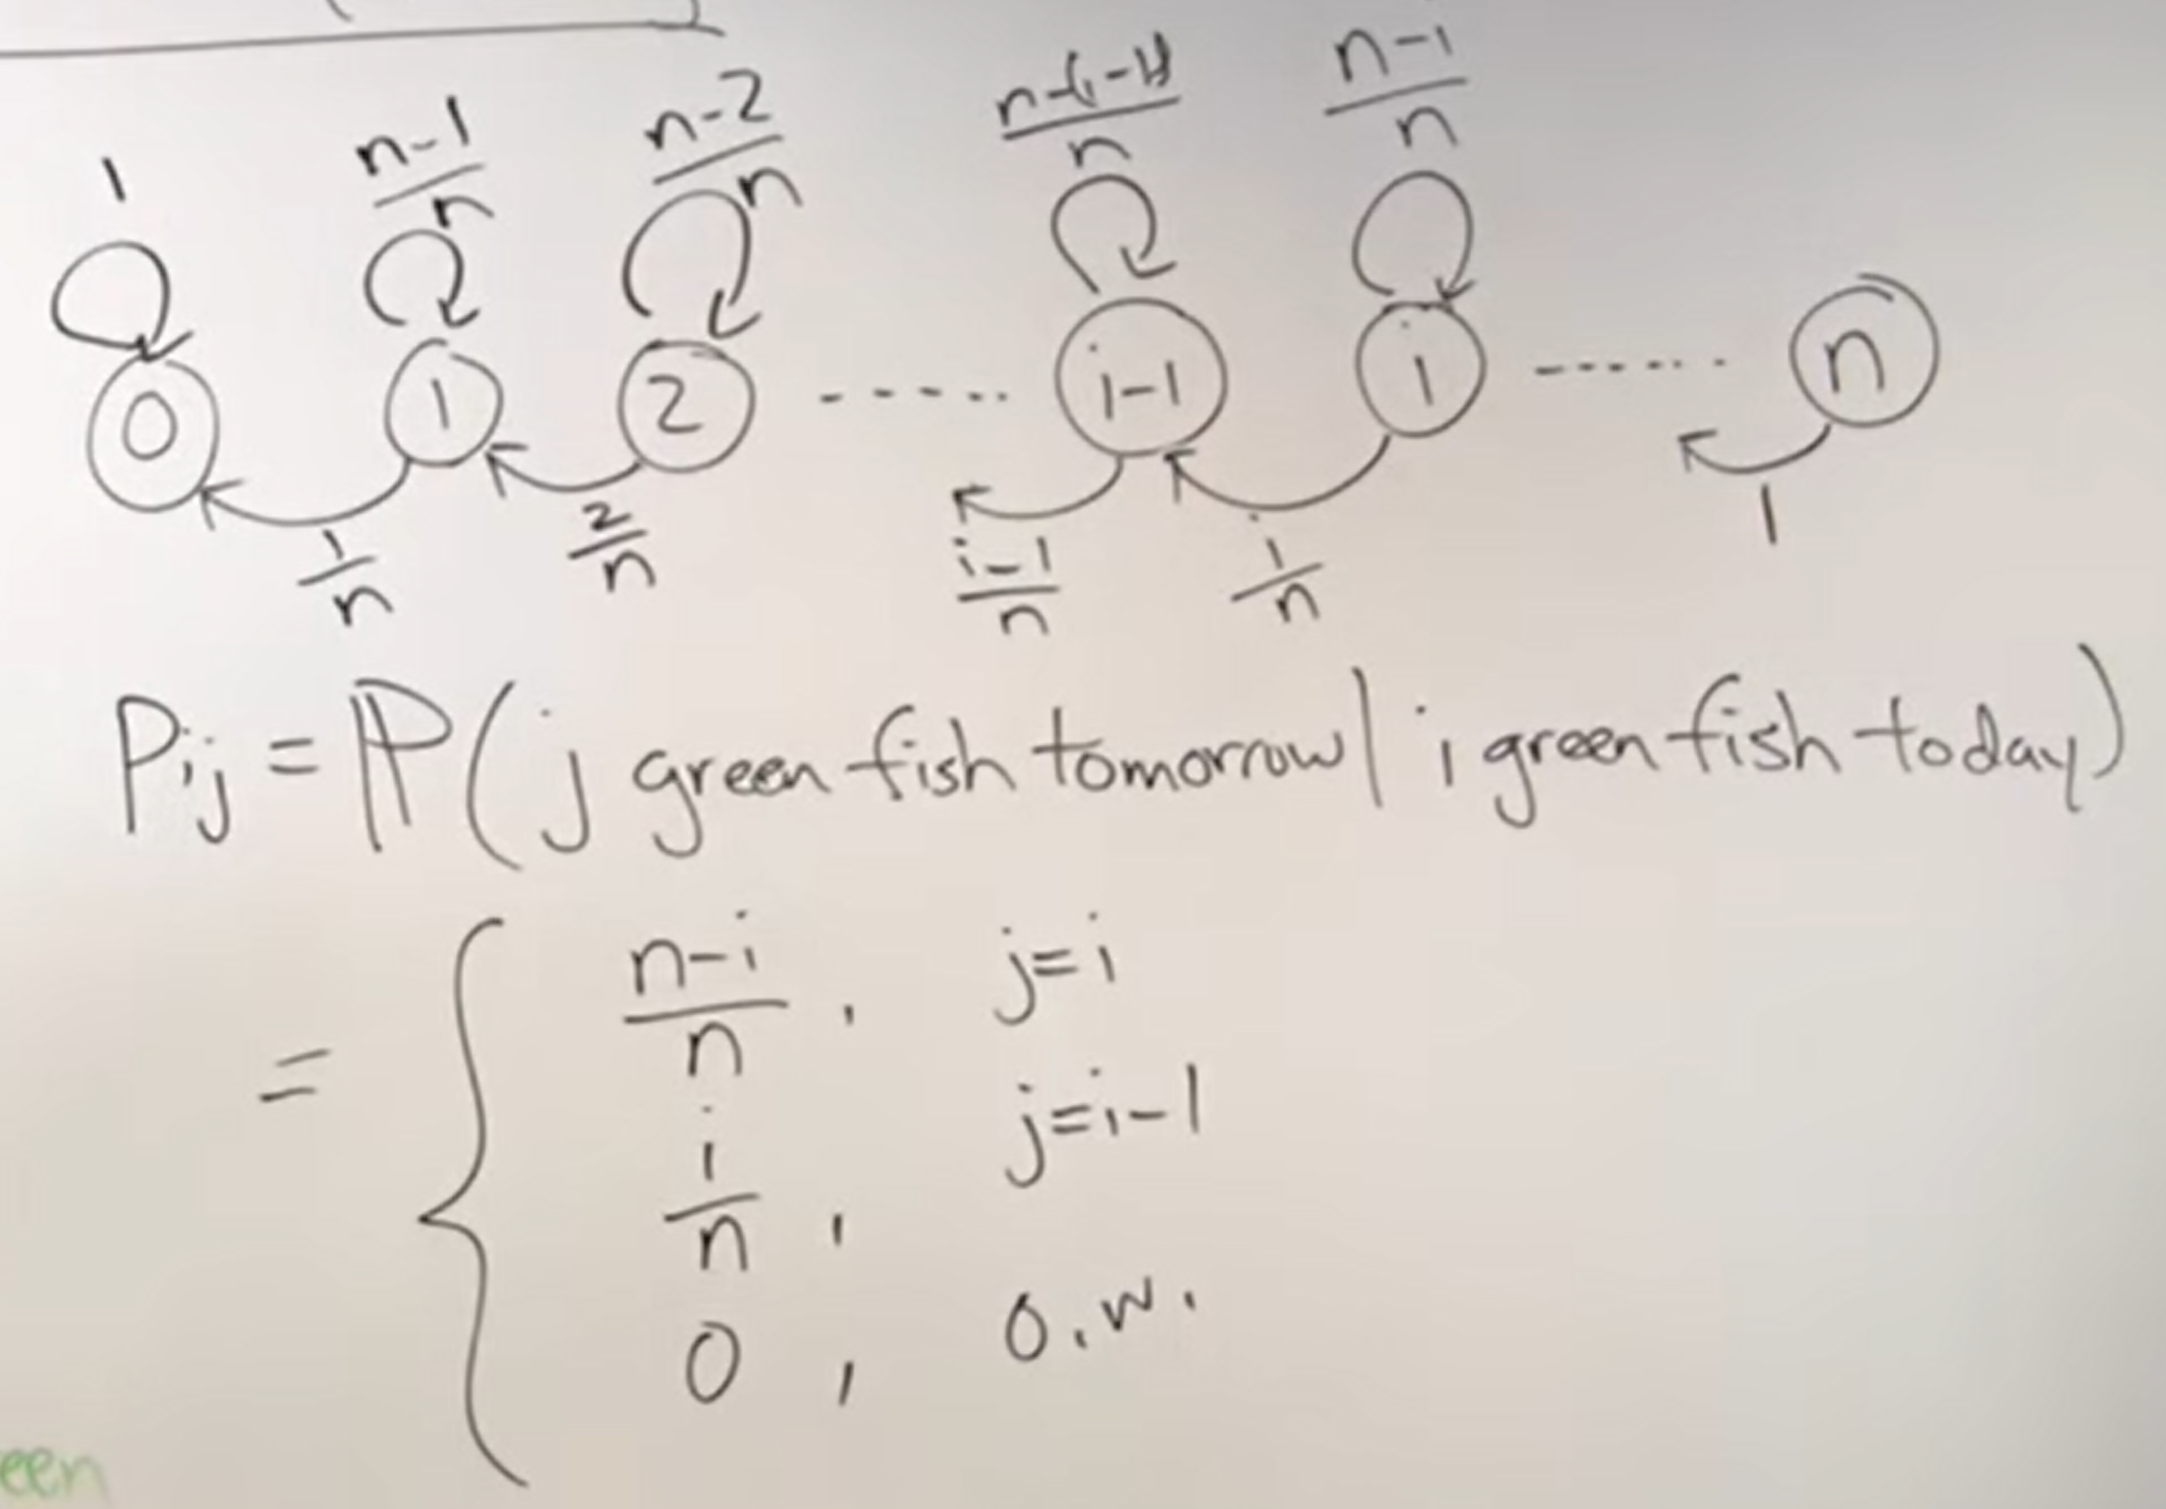 1 n-1/n n-2/n n-(i-1)/n n-i/n
0 1 2 ...... i-1 i ...... n
1/n 2/n i-1/n i/n 1
Pij = ℙ(j green fish tomorrow | i green fish today)
= { n-i/n , j=i
i/n , j=i-1
0 , o.w.
een